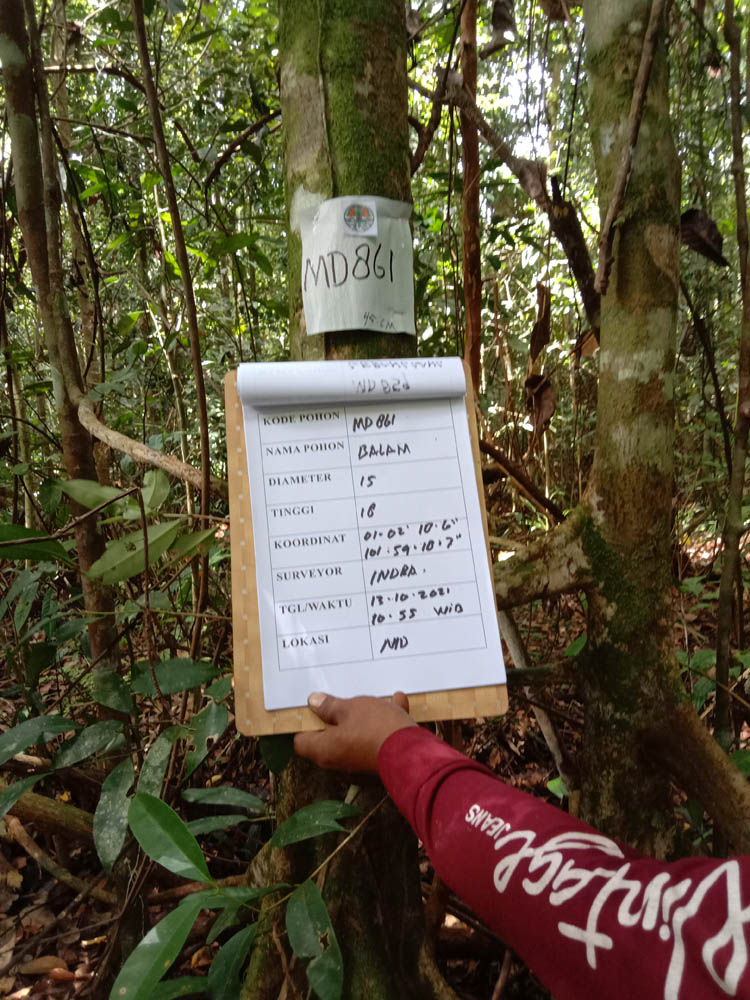 MD861
45 CM
WD 826
KODE POHON MD 861
NAMA POHON BALAM
DIAMETER 15
TINGGI 18
KOORDINAT 01·02' 10·6"
101·59·18·7"
SURVEYOR INDRA.
TGL/WAKTU 13·10·2021
10·55 WIB
LOKASI
Vintage
JEANS